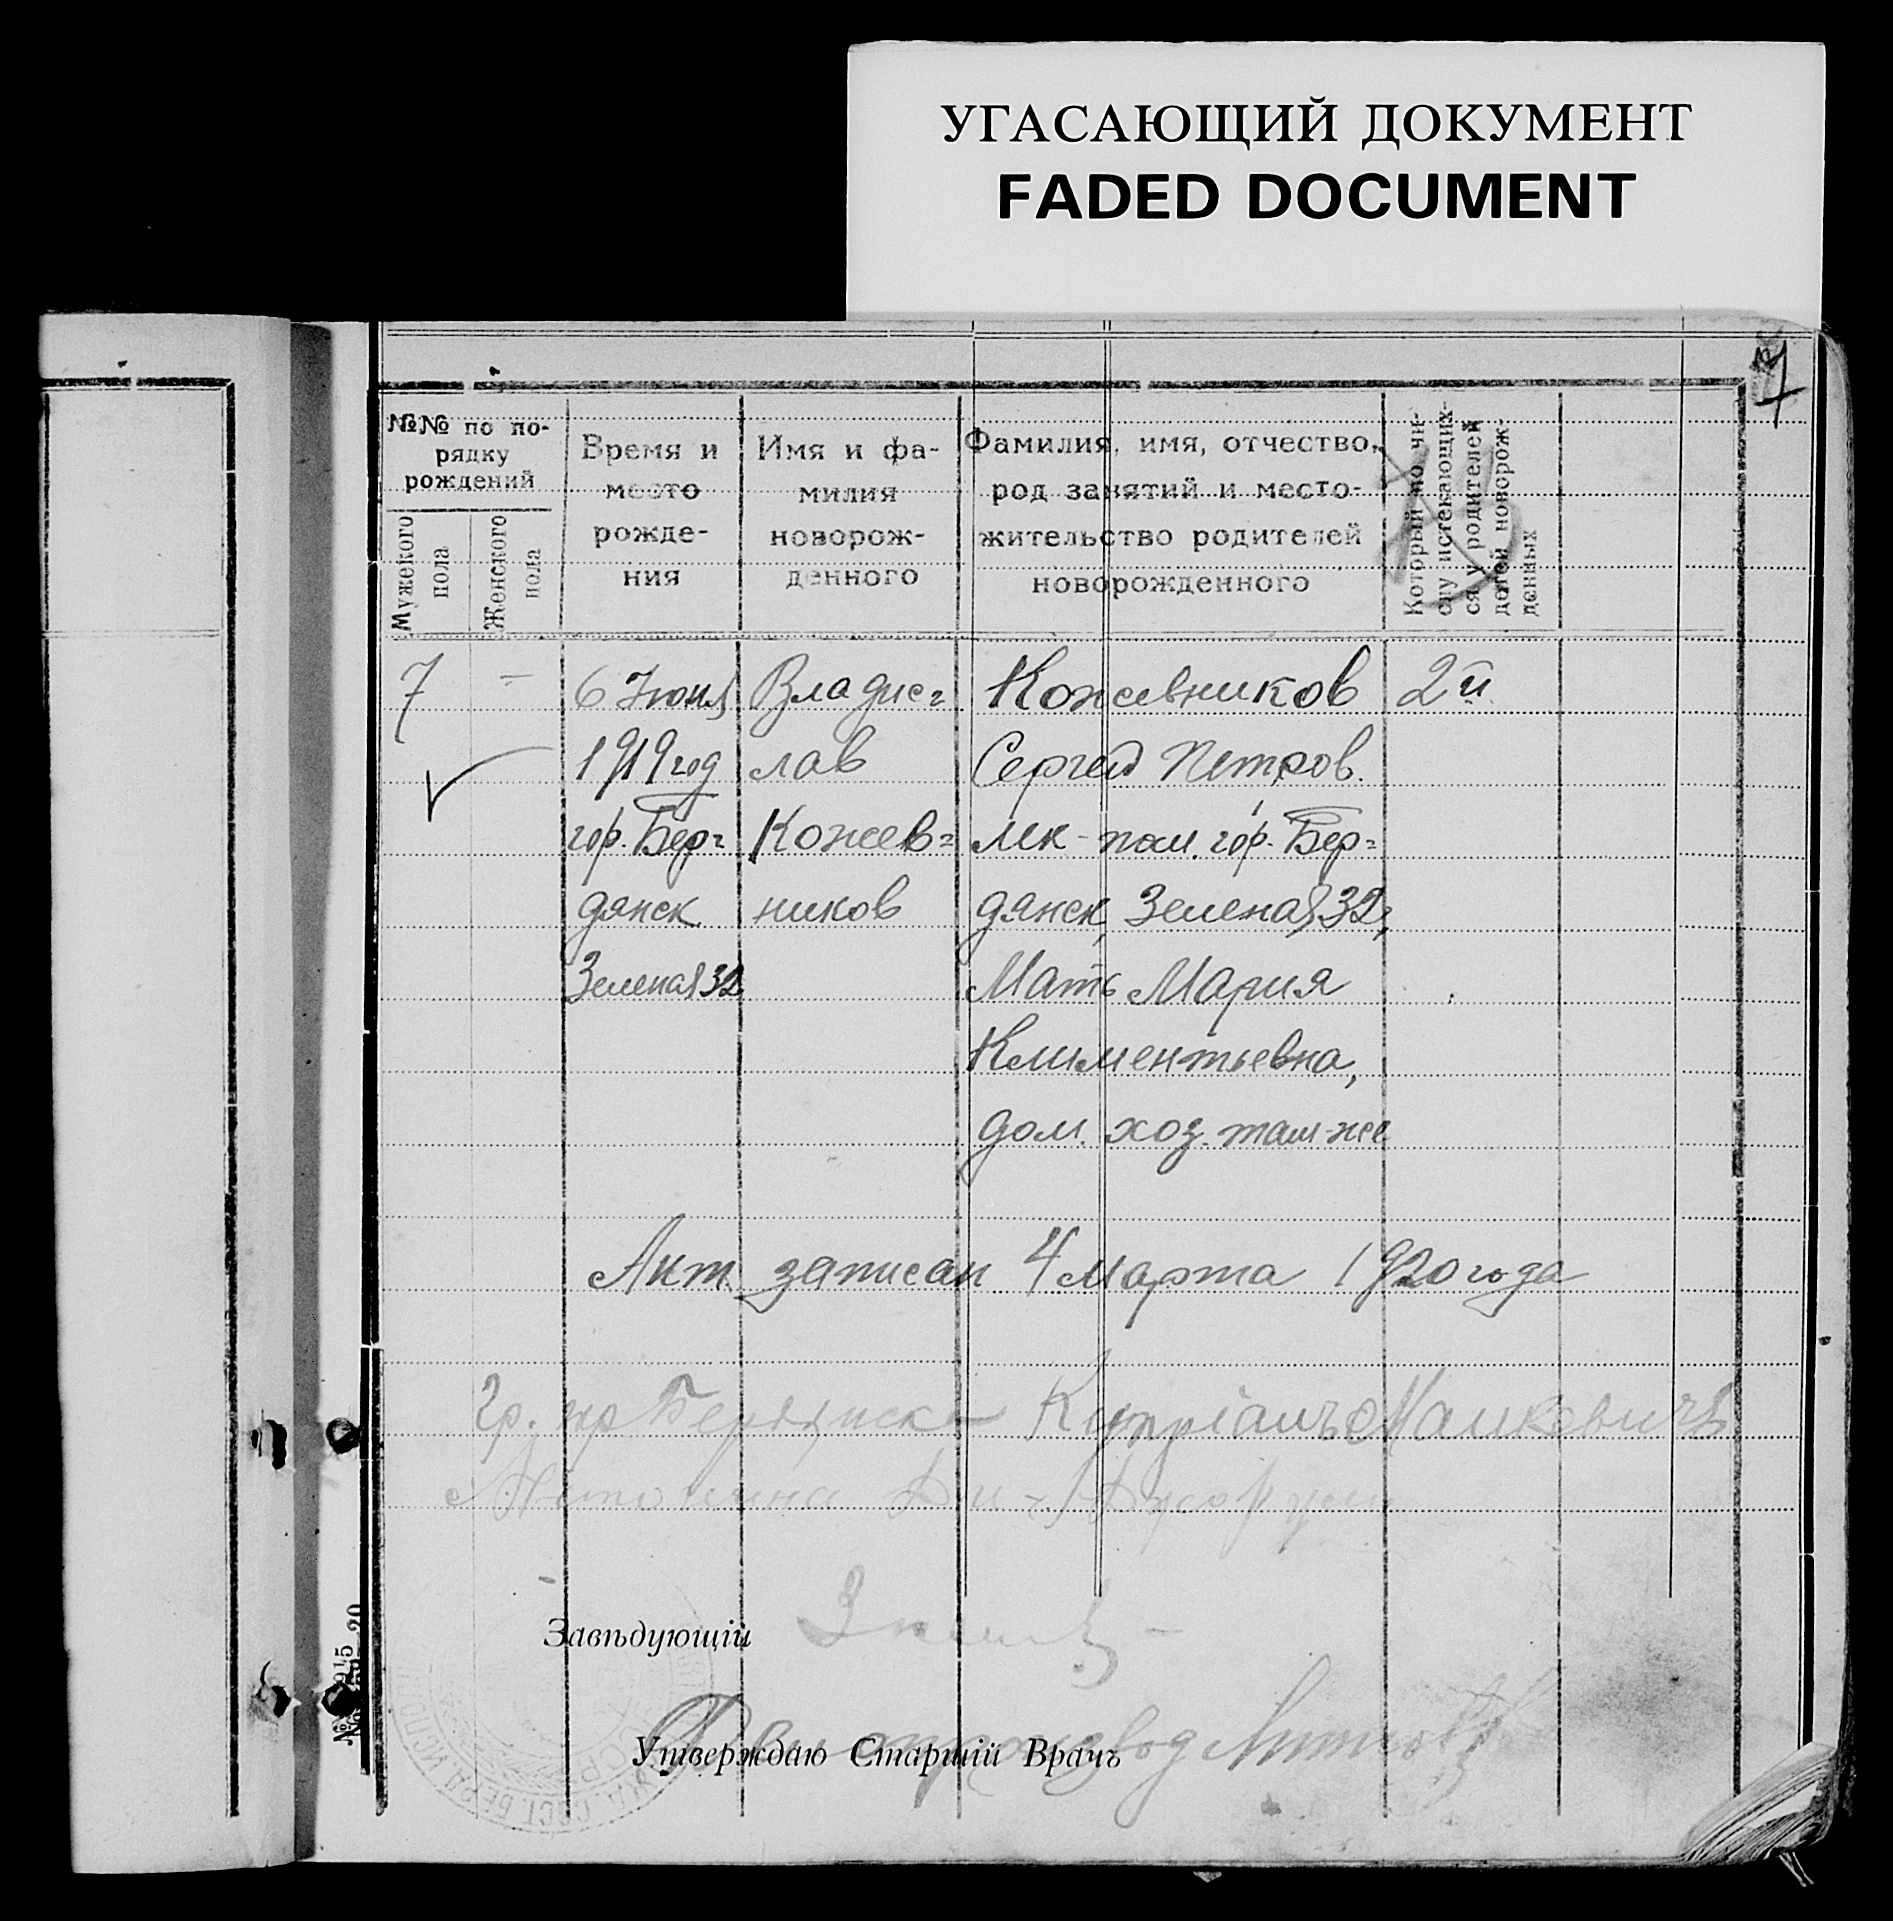 УГАСАЮЩИЙ ДОКУМЕНТ
FADED DOCUMENT
7
№№ по по-
рядку
рождений
Мужского
пола
Женского
пола
Время и
место
рожде-
ния
Имя и фа-
милия
новорож-
денного
Фамилия, имя, отчество,
род занятий и место-
жительство родителей
новорожденного
Который по чи-
слу истекающих-
ся у родителей
детей новорож-
денных
7
—
6 Июня
1919 год
гор. Бер=
дянск
Зеленая 32
Владис=
лав
Кожев=
ников
Кожевников
Сергей Петров.
гор. Бер=
дянск, Зеленая 32,
Мать Мария
Климентьевна,
дом. хоз. там-же
2й
Акт записан 4 Марта 1920 года
Гр. гор Бердянска Купріанъ Манкевичъ
Завѣдующій
Утверждаю Старшій Врачъ